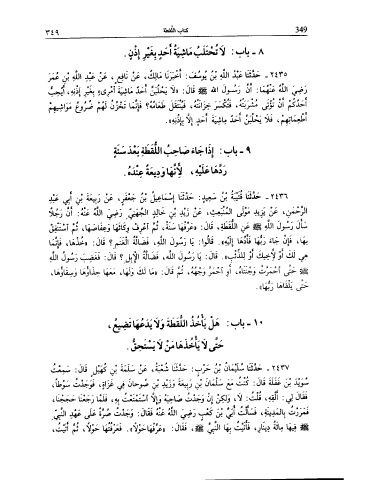 349
كتاب اللقطة
٣٤٩
٨ - باب: لَا تُحْتَلَبُ مَاشِيَةُ أَحَدٍ بِغَيْرِ إِذْنٍ.
٢٤٣٥ - حَدَّثَنَا عَبْدُ اللَّهِ بْنُ يُوسُفَ: أَخْبَرَنَا مَالِكٌ، عَنْ نَافِعٍ، عَنْ عَبْدِ اللَّهِ بْنِ عُمَرَ
رَضِيَ اللَّهُ عَنْهُمَا: أَنَّ رَسُولَ اللَّهِ ﷺ قَالَ: «لَا يَحْلُبَنَّ أَحَدٌ مَاشِيَةَ امْرِىءٍ بِغَيْرِ إِذْنِهِ، أَيُحِبُّ
أَحَدُكُمْ أَنْ تُؤْتَى مَشْرُبَتُهُ، فَتُكْسَرَ خِزَانَتُهُ، فَيُنْتَقَلَ طَعَامُهُ؟ فَإِنَّمَا تَخْزُنُ لَهُمْ ضُرُوعُ مَوَاشِيهِمْ
أَطْعِمَاتِهِمْ، فَلَا يَحْلُبَنَّ أَحَدٌ مَاشِيَةَ أَحَدٍ إِلَّا بِإِذْنِهِ».
٩ - باب: إِذَا جَاءَ صَاحِبُ اللُّقَطَةِ بَعْدَ سَنَةٍ
رَدَّهَا عَلَيْهِ، لِأَنَّهَا وَدِيعَةٌ عِنْدَهُ.
٢٤٣٦ - حَدَّثَنَا قُتَيْبَةُ بْنُ سَعِيدٍ: حَدَّثَنَا إِسْمَاعِيلُ بْنُ جَعْفَرٍ، عَنْ رَبِيعَةَ بْنِ أَبِي عَبْدِ
الرَّحْمَنِ، عَنْ يَزِيدَ مَوْلَى الْمُنْبَعِثِ، عَنْ زَيْدِ بْنِ خَالِدٍ الْجُهَنِيِّ رَضِيَ اللَّهُ عَنْهُ: أَنَّ رَجُلًا
سَأَلَ رَسُولَ اللَّهِ ﷺ عَنِ اللُّقَطَةِ، قَالَ: «عَرِّفْهَا سَنَةً، ثُمَّ اعْرِفْ وِكَاءَهَا وَعِفَاصَهَا، ثُمَّ اسْتَنْفِقْ
بِهَا، فَإِنْ جَاءَ رَبُّهَا فَأَدِّهَا إِلَيْهِ». قَالُوا: يَا رَسُولَ اللَّهِ، فَضَالَّةُ الْغَنَمِ؟ قَالَ: «خُذْهَا، فَإِنَّمَا
هِيَ لَكَ أَوْ لِأَخِيكَ أَوْ لِلذِّئْبِ». قَالَ: يَا رَسُولَ اللَّهِ، فَضَالَّةُ الْإِبِلِ؟ قَالَ: فَغَضِبَ رَسُولُ اللَّهِ
ﷺ حَتَّى احْمَرَّتْ وَجْنَتَاهُ، أَوِ احْمَرَّ وَجْهُهُ، ثُمَّ قَالَ: «مَا لَكَ وَلَهَا، مَعَهَا حِذَاؤُهَا وَسِقَاؤُهَا،
حَتَّى يَلْقَاهَا رَبُّهَا».
١٠ - باب: هَلْ يَأْخُذُ اللُّقَطَةَ وَلَا يَدَعُهَا تَضِيعُ،
حَتَّى لَا يَأْخُذَهَا مَنْ لَا يَسْتَحِقُّ.
٢٤٣٧ - حَدَّثَنَا سُلَيْمَانُ بْنُ حَرْبٍ: حَدَّثَنَا شُعْبَةُ، عَنْ سَلَمَةَ بْنِ كُهَيْلٍ قَالَ: سَمِعْتُ
سُوَيْدَ بْنَ غَفَلَةَ قَالَ: كُنْتُ مَعَ سَلْمَانَ بْنِ رَبِيعَةَ وَزَيْدِ بْنِ صُوحَانَ فِي غَزَاةٍ، فَوَجَدْتُ سَوْطًا،
فَقَالَ لِي: أَلْقِهِ، قُلْتُ: لَا، وَلَكِنْ إِنْ وَجَدْتُ صَاحِبَهُ وَإِلَّا اسْتَمْتَعْتُ بِهِ، فَلَمَّا رَجَعْنَا حَجَجْنَا،
فَمَرَرْتُ بِالْمَدِينَةِ، فَسَأَلْتُ أُبَيَّ بْنَ كَعْبٍ رَضِيَ اللَّهُ عَنْهُ فَقَالَ: وَجَدْتُ صُرَّةً عَلَى عَهْدِ النَّبِيِّ
ﷺ فِيهَا مِائَةُ دِينَارٍ، فَأَتَيْتُ بِهَا النَّبِيَّ ﷺ، فَقَالَ: «عَرِّفْهَا حَوْلًا». فَعَرَّفْتُهَا حَوْلًا، ثُمَّ أَتَيْتُ،